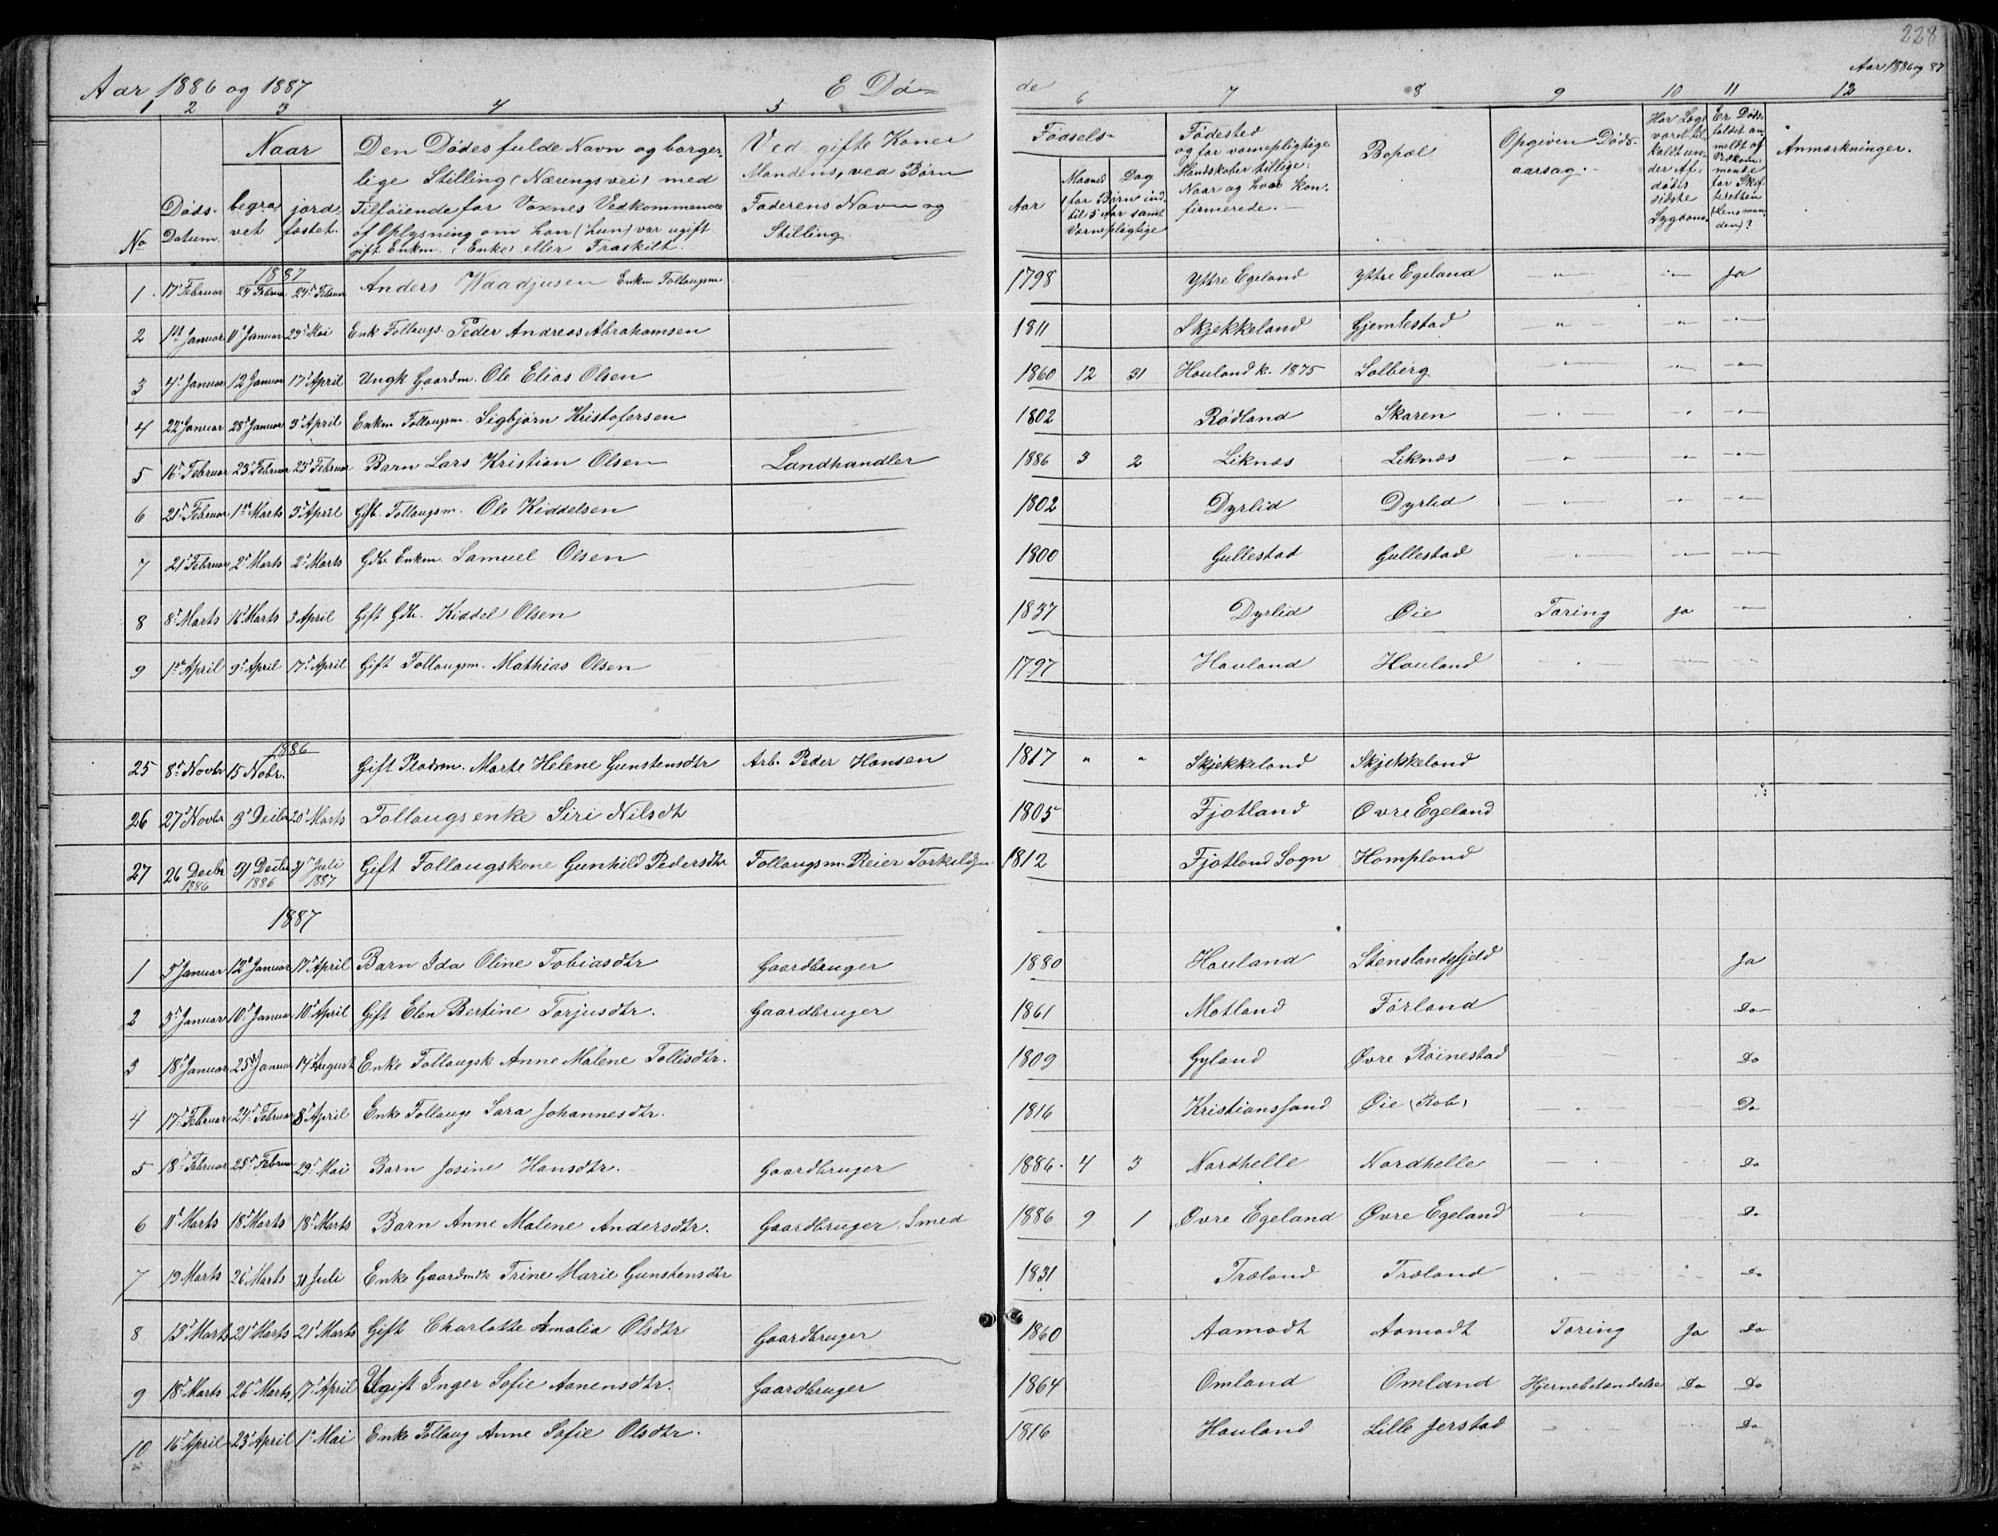 228
Aar 1886 og 1887 E Dø- de Aar 1886 og 87
1 2 3 4 5 6 7 8 9 10 11 12
No
Døds-Datum.
Naar
begravet
jordfæstet.
Den Dødes fulde Navn og borger-
lige Stilling (Næringsvei) med
Tilføiende for Voxnes Vedkommende
af Oplysning om han (hun) var ugift
gift Enkm. (Enke) eller Fraskilt.
Ved gifte Koner
Mandens, ved Børn
Faderens Navn og
Stilling.
Fødsels-
Aar
Maaned Dag
(for Børn ind-
til 5 Aar samt
Værnepligtige
Fødested
og for værnepligtige
Mandskaber tillige:
Naar og hvor kon-
firmerede.
Bopæl
Opgiven Døds-
aarsag.
Har Læge
været til-
kaldt un-
der Af-
dødes
sidste
Sygdom
Er Døds-
faldet an-
meldt af
Vedkom-
mende
for Skif-
teretten
(Lensman-
den)?
Anmærkninger.
1887
1 17 Februar 24 Februar 24 Februar Anders Waadjusen Enkm Follaugsm 1798 Yttre Egeland Yttre Egeland " " Ja
2 1st Januar 11 Januar 29 Mai Enk Follaugs. Peder Andreas Abrahamsen 1811 Skjekkeland Gjemlestad " " "
3 4 Januar 12 Januar 17 April Ungk Gaardm. Ole Elias Olsen 1860 12 31 Houland k. 1875 Solberg " " "
4 22 Januar 28 Januar 3 April Enkm Follaugsm. Sigbjørn Kristofersen 1802 Rødland Skaren " " "
5 16 Februar 23 Februar 23 Februar Barn Lars Kristian Olsen Landhandler 1886 3 2 Liknes Liknes " " "
6 21 Februar 1ste Marts 3 April Gift. Follaugsm. Ole Kiddelsen 1802 Dyrlid Dyrlid " " "
7 21 Februar 2 Marts 2 Marts Gdbr Enkm. Samuel Olsen 1800 Gullestad Gullestad " " "
8 8 Marts 16 Marts 3 April Gift Gdbr. Kiddel Olsen 1837 Dyrlid Øie Tæring Ja "
9 1ste April 9 April 17 April Gift Follaugsm. Mathias Olsen 1797 Houland Houland " " "
1886
25 8 Novbr 15 Nobr. Gift Pladsm. Marte Helene Gunstensdtr Arb. Peder Hansen 1817 " " Skjekkeland Skjekkeland
26 27 Novbr 3 Decbr 20 Marts Follaugsenke Siri Nilsdtr 1805 Fjotland Øvre Egeland
27 26 Decbr 1886 31 Decbr 1886 31 Juli 1887 Gift Follaugskone Gunhild Pedersdtr Follaugsm. Reier Torkildsen 1812 Fjotland Sogn Hompland
1887
1 5 Januar 12 Januar 17 April Barn Ida Oline Tobiasdtr Gaardbruger 1880 Houland Stenslandsfjeld Ja
2 3 Januar 10 Januar 10 April Gift Elen Bertine Torjusdtr. Gaardbruger 1861 Motland Førland Do
3 18 Januar 25 Januar 14 August Enke Follaugsk Anne Malene Tollisdtr. 1809 Gyland Øvre Røinestad Do
4 17 Februar 24 Februar 8 April Enke Follaugs Sara Johannesdtr. 1816 Kristianssand Øie (Rob) " Do
5 18 Februar 25 Februar 29 Mai Barn Josine Hansdtr. Gaardbruger 1886 4 3 Nordhelle Nordhelle " Do
6 11 Marts 18 Marts 18 Marts Barn Anne Malene Andersdtr. Gaardbruger, Smed 1886 9 1 Øvre Egeland Øvre Egeland " Do
7 19 Marts 26 Marts 31 Juli Enke Gaardmdk Trine Marie Gunstensdtr 1831 Træland Træland " " Do
8 13 Marts 21 Marts 21 Marts Gift Charlotte Amalia Olsdtr Gaardbruger 1860 Aamodt Aamodt Tæring Ja Do
9 18 Marts 26 Marts 17 April Ugift Inger Sofie Aanensdtr. Gaardbruger 1864 Omland Omland Hjernebetændelse Do Do
10 16 April 23 April 1 Mai Enke Follaug Anne Sofie Olsdtr. 1816 Houland Lille Jerstad Do